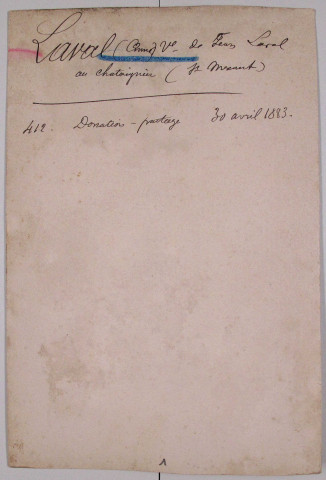 Laval (Anne) Ve de Feus Laval
au chataignier (St Mexant)
412. Donation - partage 30 avril 1883.
1